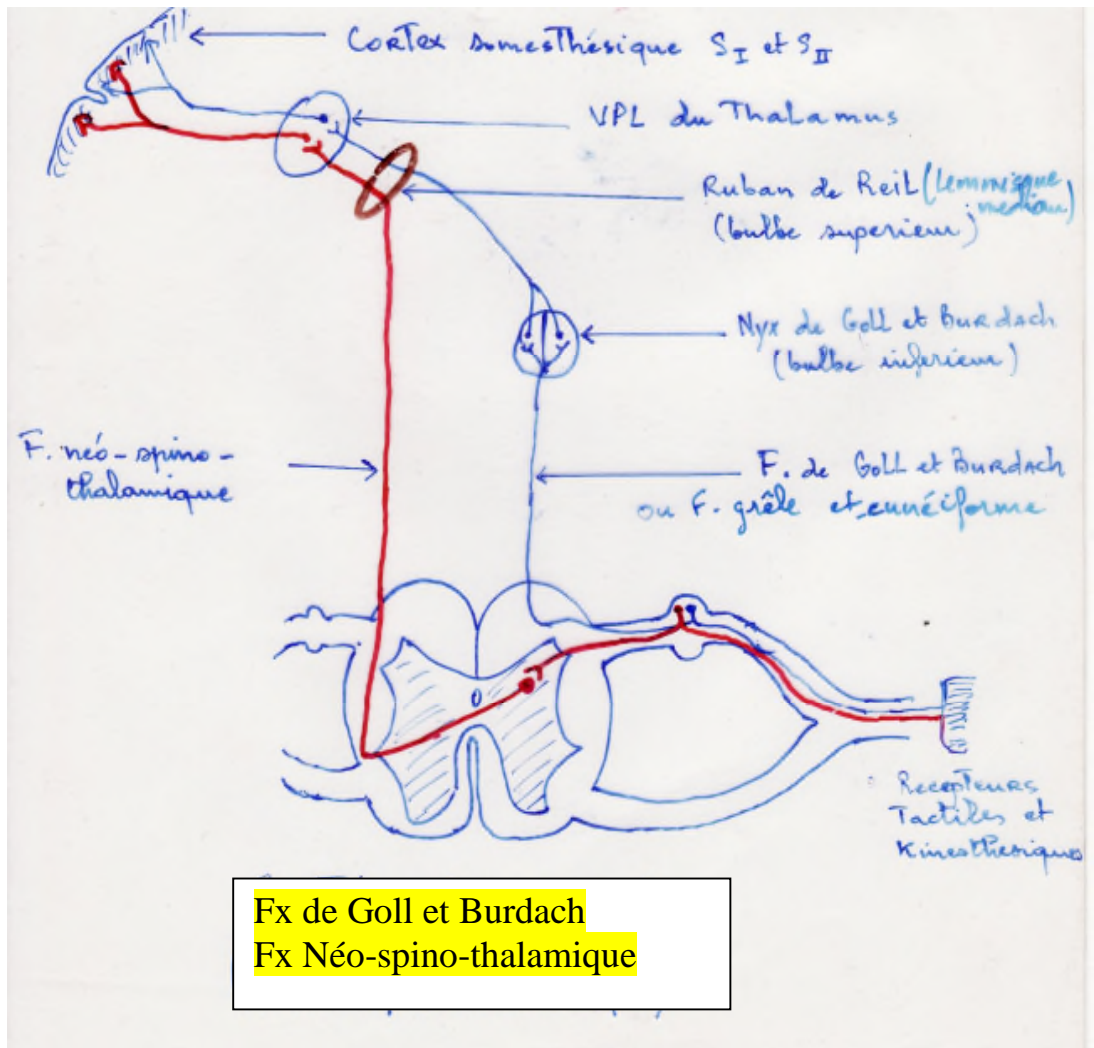 Cortex somesthésique S I et S II
VPL du Thalamus
Ruban de Reil (lemnisque
median)
(bulbe superieur)
Nyx de Goll et Burdach
(bulbe inferieur)
F. néo-spino-
thalamique
F. de Goll et Burdach
ou F. grêle et cunéiforme
Recepteurs
Tactiles et
Kinesthesiques
Fx de Goll et Burdach
Fx Néo-spino-thalamique